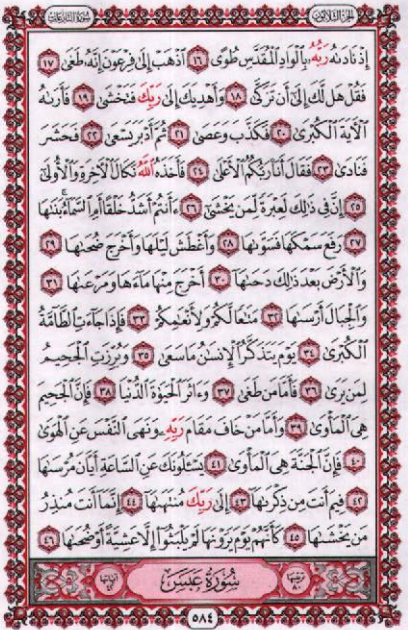 سورة النازعات الجزء الثلاثون
إِذْ نَادَىٰهُ رَبُّهُۥ بِٱلْوَادِ ٱلْمُقَدَّسِ طُوًى ١٦ ٱذْهَبْ إِلَىٰ فِرْعَوْنَ إِنَّهُۥ طَغَىٰ ١٧
فَقُلْ هَل لَّكَ إِلَىٰٓ أَن تَزَكَّىٰ ١٨ وَأَهْدِيَكَ إِلَىٰ رَبِّكَ فَتَخْشَىٰ ١٩ فَأَرَىٰهُ
ٱلْءَايَةَ ٱلْكُبْرَىٰ ٢٠ فَكَذَّبَ وَعَصَىٰ ٢١ ثُمَّ أَدْبَرَ يَسْعَىٰ ٢٢ فَحَشَرَ
فَنَادَىٰ ٢٣ فَقَالَ أَنَا۠ رَبُّكُمُ ٱلْأَعْلَىٰ ٢٤ فَأَخَذَهُ ٱللَّهُ نَكَالَ ٱلْءَاخِرَةِ وَٱلْأُولَىٰٓ
٢٥ إِنَّ فِى ذَٰلِكَ لَعِبْرَةً لِّمَن يَخْشَىٰٓ ٢٦ ءَأَنتُمْ أَشَدُّ خَلْقًا أَمِ ٱلسَّمَآءُ ۚ بَنَىٰهَا
٢٧ رَفَعَ سَمْكَهَا فَسَوَّىٰهَا ٢٨ وَأَغْطَشَ لَيْلَهَا وَأَخْرَجَ ضُحَىٰهَا ٢٩
وَٱلْأَرْضَ بَعْدَ ذَٰلِكَ دَحَىٰهَآ ٣٠ أَخْرَجَ مِنْهَا مَآءَهَا وَمَرْعَىٰهَا ٣١
وَٱلْجِبَالَ أَرْسَىٰهَا ٣٢ مَتَٰعًا لَّكُمْ وَلِأَنْعَٰمِكُمْ ٣٣ فَإِذَا جَآءَتِ ٱلطَّآمَّةُ
ٱلْكُبْرَىٰ ٣٤ يَوْمَ يَتَذَكَّرُ ٱلْإِنسَٰنُ مَا سَعَىٰ ٣٥ وَبُرِّزَتِ ٱلْجَحِيمُ
لِمَن يَرَىٰ ٣٦ فَأَمَّا مَن طَغَىٰ ٣٧ وَءَاثَرَ ٱلْحَيَوٰةَ ٱلدُّنْيَا ٣٨ فَإِنَّ ٱلْجَحِيمَ
هِىَ ٱلْمَأْوَىٰ ٣٩ وَأَمَّا مَنْ خَافَ مَقَامَ رَبِّهِۦ وَنَهَى ٱلنَّفْسَ عَنِ ٱلْهَوَىٰ
٤٠ فَإِنَّ ٱلْجَنَّةَ هِىَ ٱلْمَأْوَىٰ ٤١ يَسْـَٔلُونَكَ عَنِ ٱلسَّاعَةِ أَيَّانَ مُرْسَىٰهَا
٤٢ فِيمَ أَنتَ مِن ذِكْرَىٰهَآ ٤٣ إِلَىٰ رَبِّكَ مُنتَهَىٰهَآ ٤٤ إِنَّمَآ أَنتَ مُنذِرُ
مَن يَخْشَىٰهَا ٤٥ كَأَنَّهُمْ يَوْمَ يَرَوْنَهَا لَمْ يَلْبَثُوٓا۟ إِلَّا عَشِيَّةً أَوْ ضُحَىٰهَا ٤٦
ترتيبها ٨٠ سُورَةُ عَبَسَ آياتها ٤٢
٥٨٤